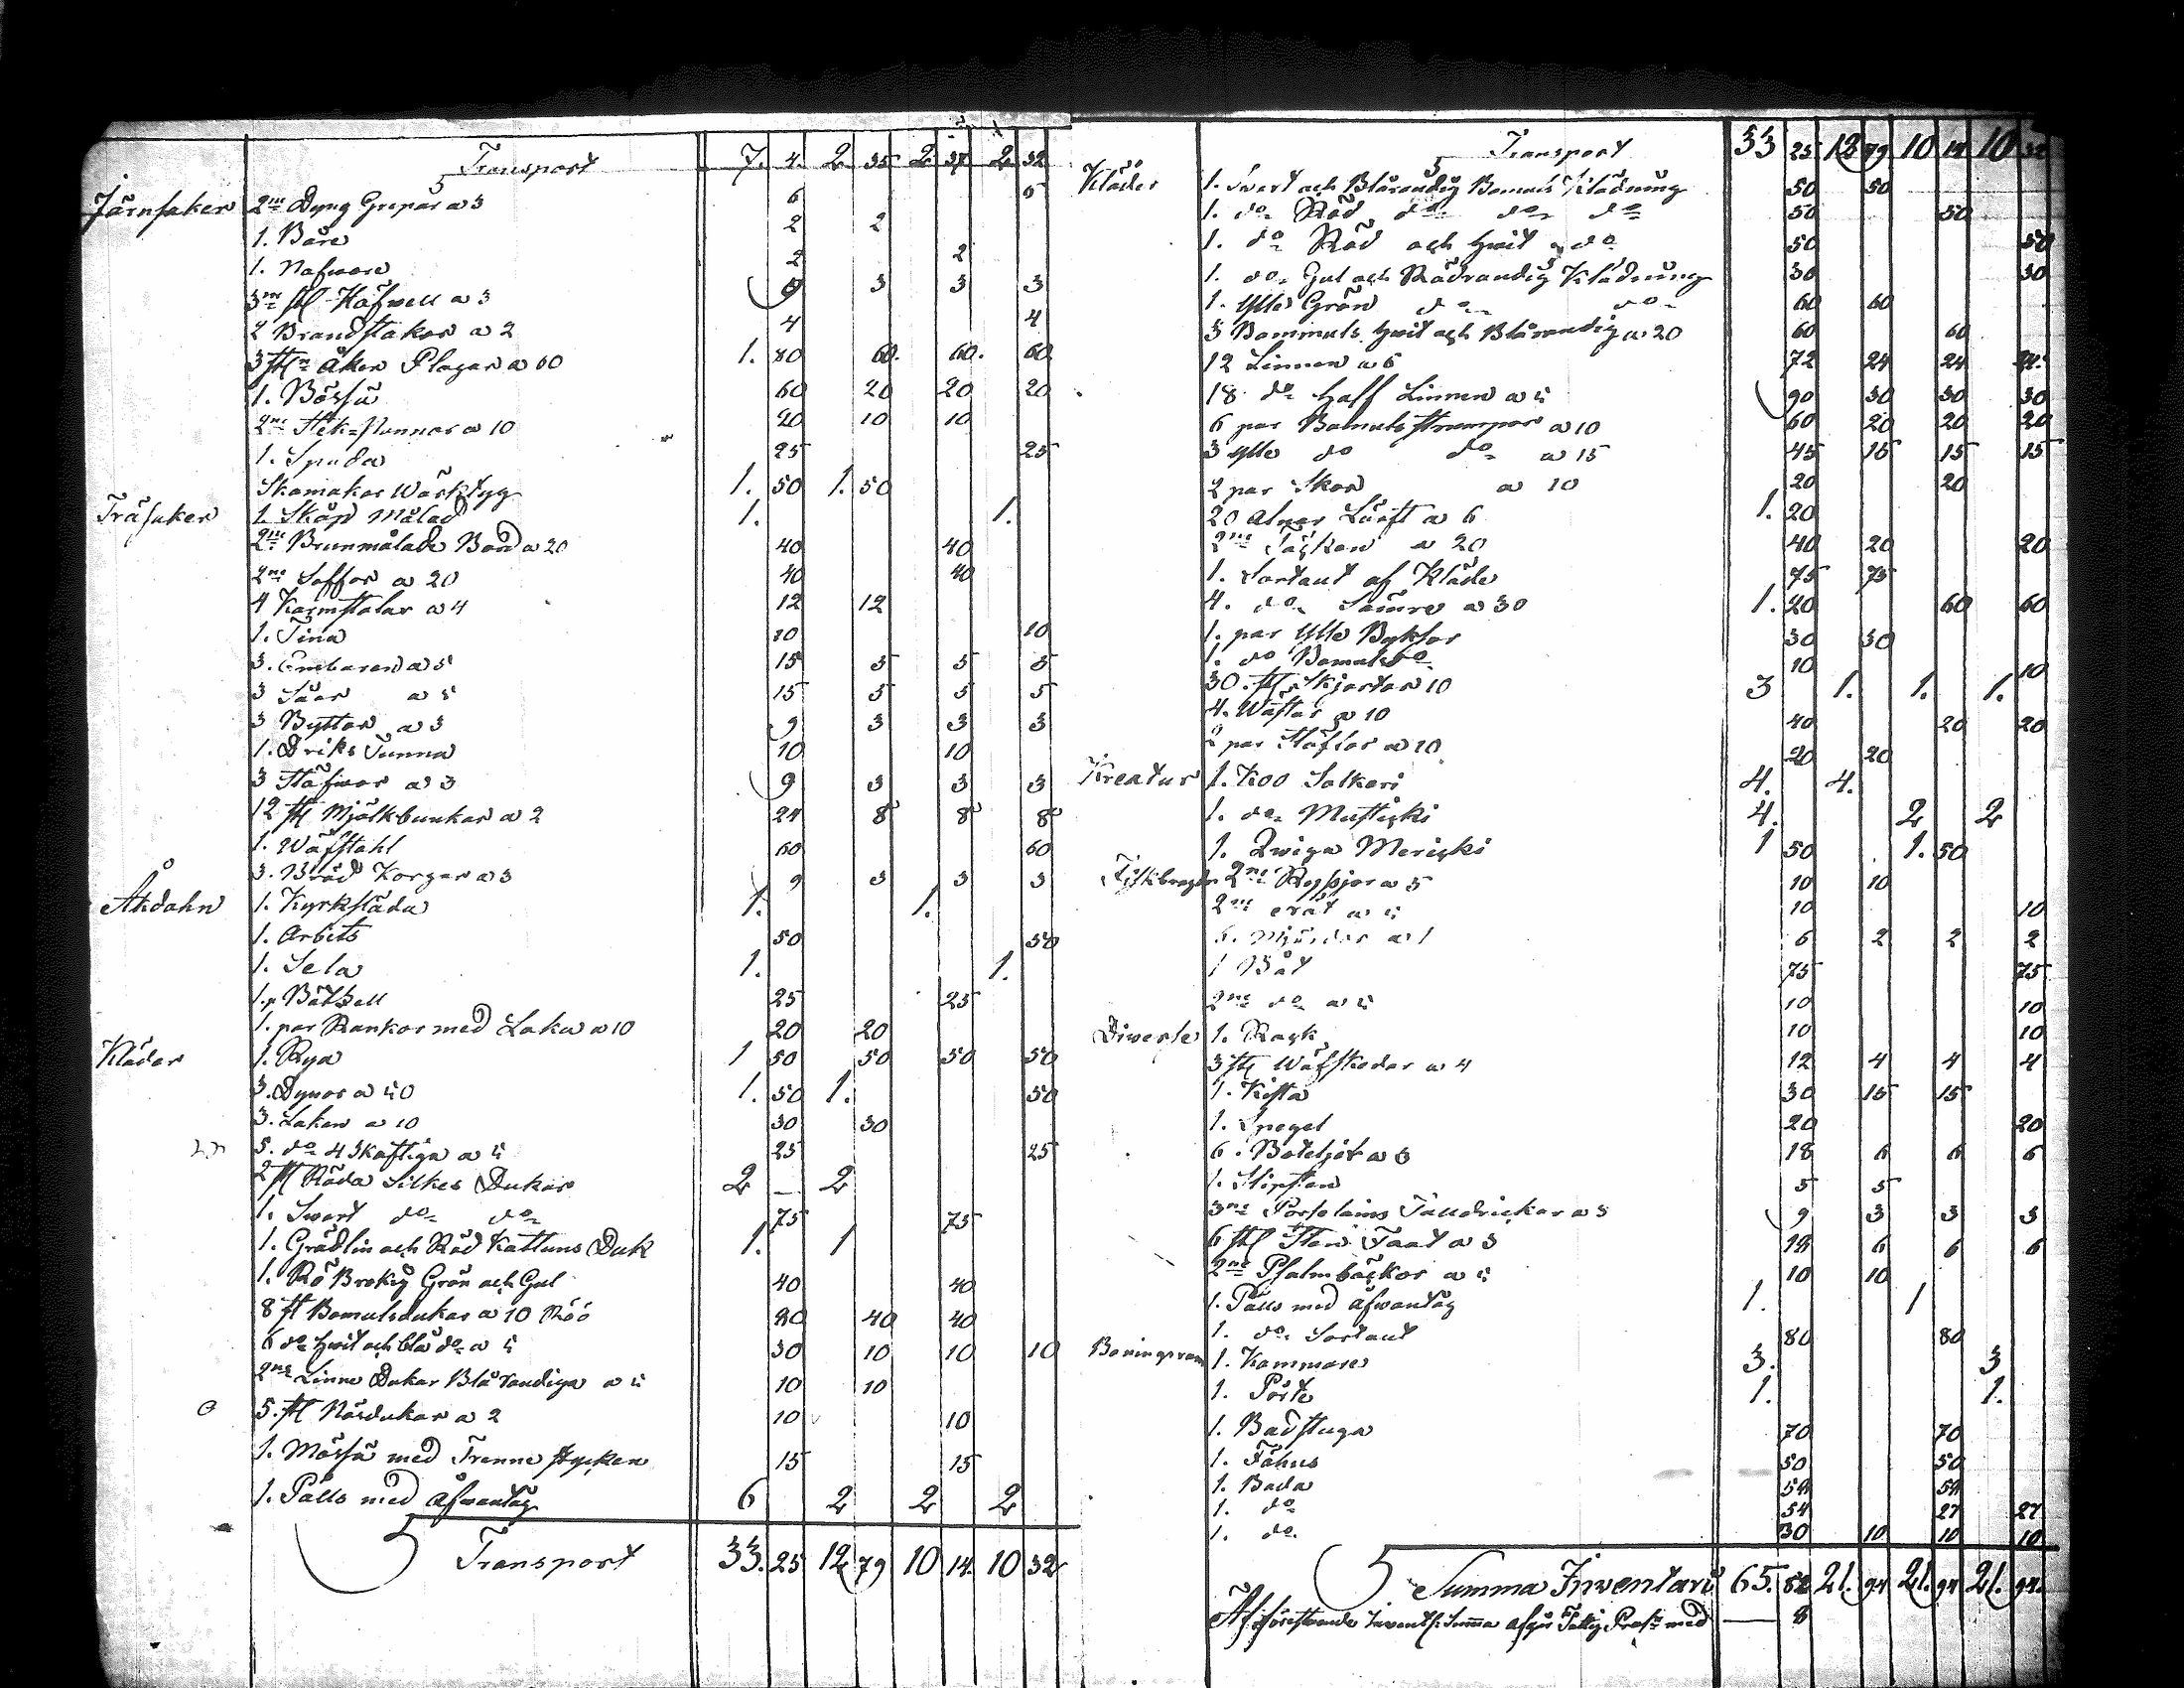 Transport 7. 4. 2 35 2 37 2 32
Järnsaker 2ne Dyng Grepar a 3 6 6
1. Båre 2 2
1. Nafware 2 2
3ne st Häfwell a 3 9 3 3 3
2 Brandstakar a 2 4 4
3 st Åker Plogar a 60 1. 80 60. 60. 60
1. Bössa 60 20 20 20
2ne Stek-Pannor a 10 20 10 10
1. Spada 25 25
Skomakar Wärktyg 1. 50 1. 50
Träsaker 1. Skåp Målad 1. 1.
2ne Brunmålade Bord a 20 40 40
2ne Soffor a 20 40 40
4 Karmstolar a 4 12 12
1. Tina 10 10
3. Embaren a 5 15 5 5 5
3 Såar a 5 15 5 5 5
3 Byttor a 3 9 3 3 3
1. Driks Tunna 10 10
3 Stäfwor a 3 9 3 3 3
12 st Mjölkbunkar a 2 24 8 8 8
1. Wäfstahl 60 60
3. Bröd Korgar a 3 9 3 3 3
Åkdohn 1. Kyrksläda 1. 1.
1. Arbets 50 50
1. Sela 1. 1.
1. Betsell 25 25
1. par Rankor med Laka a 10 20 20
Kläder 1. Rya 1 50 50 50 50
3. Dynor a 50 1. 50 1. 50
3. Lakan a 10 30 30
5. do 4 Skaftiga a 5 25 25
2 st Röda Silkes Dukar 2 — 2
1. Swart do do 75 75
1. Grädlin och Röd Kattuns Duk 1. 1
1. Rö Brokig Grön och Gul 40 40
8 st Bomulsdukar a 10 80 40 40
6 do Hwit och blå do a 5 30 10 10 10
2ne Linne Dukar Blårandiga a 5 10 10
5. st Näsdukar a 2 10 10
1. Mössa med Trenne stycken 15 15
1. Pälls med Åfwantåg 6 2 2 2
Transport 33. 25 12 79 10 14. 10 32
Transport 33 25 12 79 10 14 10 32
Kläder 1. Swart och Blårandig Bomuls Klädning 50 50
1. do Röd do do do 50 50
1. do Röd och Hwit do 50 50
1. do Gul och Rödrandig Klädning 30 30
1. Ylle Grön do do 60 60
3 Bommuls Hwit och Blårandig a 20 60 60
12 Linnen a 6 72 24 24 24.
18 do Half Linnen a 5 90 30 30 30
6 par Bomuls strumpor a 10 60 20 20 20
3 Ylle do do a 15 45 15 15 15
2 par Skor a 10 20 20
20 Alnar Lärft a 6 1. 20
2ne Täcken a 20 40 20 20
1. Sortaut af Kläde 75 75
4. do Sämre a 30 1. 20 60 60
1. par Ylle Byksor 30 30
1. do Bomuls do 10 10
30. st Skjortor 10 3 1. 1. 1.
4. Wästar a 10 40 20 20
2 par Stöflor a 10 20 20
Kreatur 1. Koo Salkari 4. 4.
1. do Mustiski 4. 2 2
1. Qwiga Meriski 1 50 1. 50
2ne Ryssjor a 5 10 10
2ne Nät a 5 10 10
6. Mjärdar a 1 6 2 2 2
1 Båt 75 75
2ne do a 5 10 10
Diverse 1. Rack 10 10
3 st Wäfskedar a 4 12 4 4 4
1. Kista 30 15 15
1. Spegel 20 20
6. Boteljor a 3 18 6 6 6
1. Slipsten 5 5
3ne Porslains Talldrickar a 3 9 3 3 3
6 st Sten Faat a 3 18 6 6 6
2ne Psalmböckor a 5 10 10
1. Pälls med åfwantåg 1. 1
1. do Sortaut 80 80
Boningsrum 1. Kammare 3. 3
1. Pörte 1. 1.
1. Badstuga 70 70
1. Fähus 50 50
1. Boda 54 54
1. do 54 27 27
1. do 30 10 10 10
Summa Inventarii 65. 82 21. 94 21. 94 21. 94.
Af förestående Summa afgår Fattig med — 8